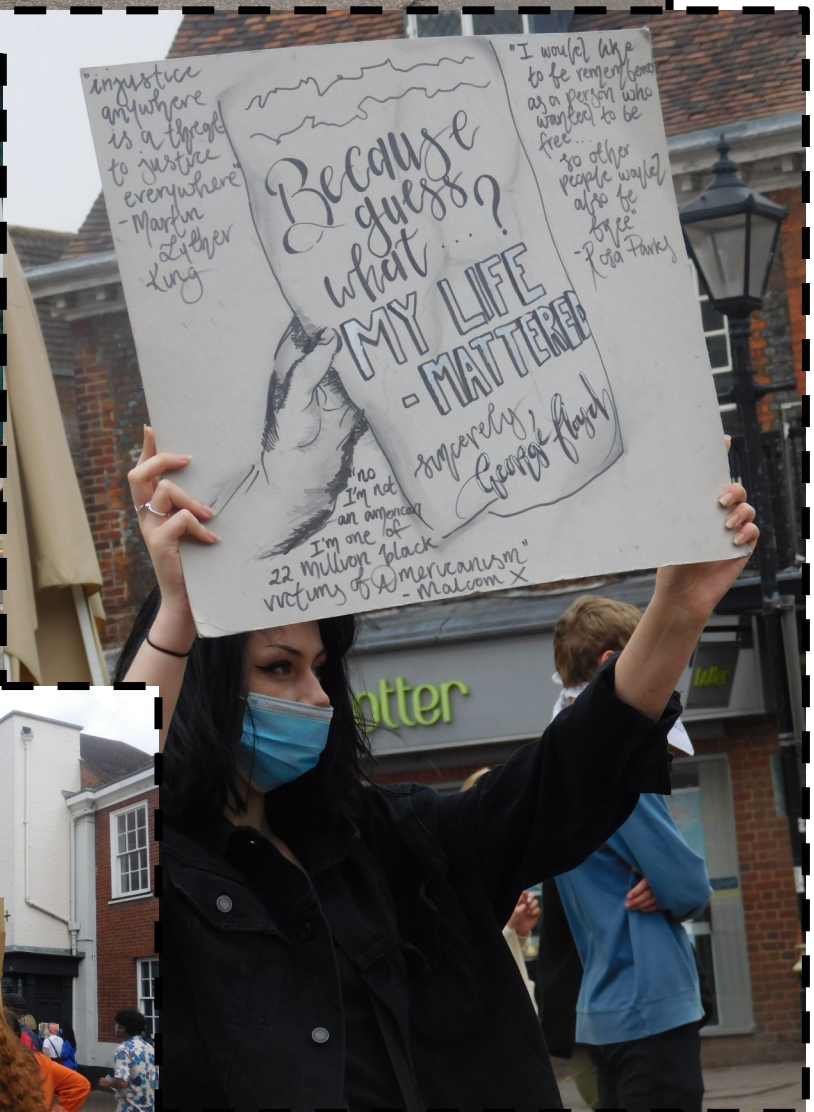 "injustice
anywhere
is a threat
to justice
everywhere"
-Martin
Luther
King
Because
guess
what...?
MY LIFE
-MATTERED
sincerely,
George floyd
"I would like
to be remembered
as a person who
wanted to be
free...
so other
people would
also be
free"
-Rosa Parks
"no
I'm not
an american
I'm one of
22 million black
victims of Americanism"
-Malcom X
otter